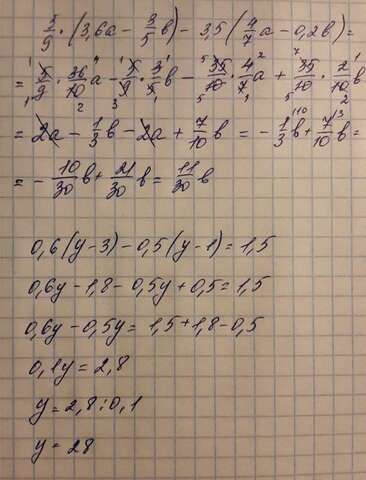 5/9 · (3,6a − 3/5 в) − 3,5(4/7 a − 0,2в) =
= 5/9 · 36/10 a − 5/9 · 3/5 в − 35/10 · 4/7 a + 35/10 · 2/10 в
= 2a − 1/3 в − 2a + 7/10 в = − 1/3 в + 7/10 в =
= − 10/30 в + 21/30 в = 11/30 в
0,6(y − 3) − 0,5(y − 1) = 1,5
0,6y − 1,8 − 0,5y + 0,5 = 1,5
0,6y − 0,5y = 1,5 + 1,8 − 0,5
0,1y = 2,8
y = 2,8 : 0,1
y = 28